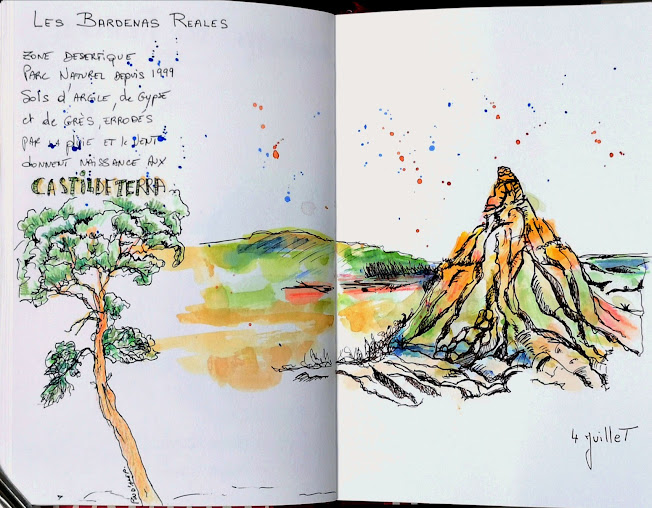 Les Bardenas Reales
Zone désertique
Parc Naturel depuis 1999
Sols d'argile, de gypse
et de grès, errodés
par la pluie et le vent
donnent naissance aux
CASTILDETERRA
4 juillet